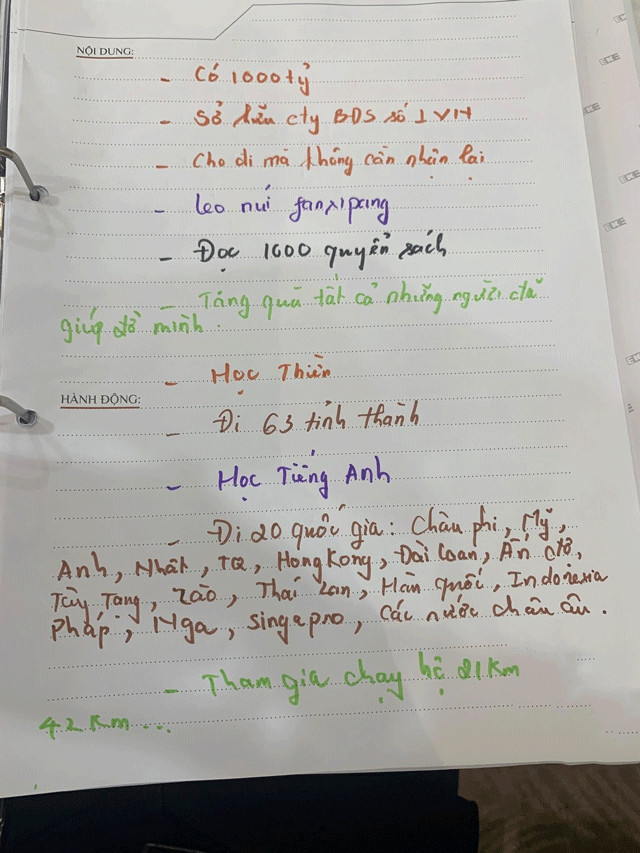 NỘI DUNG:
- Có 1000 tỷ
- Sở hữu cty BĐS số 1 VN
- Cho đi mà không cần nhận lại
- leo núi fanxipang
- Đọc 1000 quyển sách
- Tặng quà tất cả những người đã
giúp đỡ mình.
- Học Thiền
HÀNH ĐỘNG:
- Đi 63 tỉnh thành
- Học Tiếng Anh
- Đi 20 quốc gia: Châu phi, Mỹ,
Anh, Nhật, TQ, HongKong, Đài Loan, Ấn độ,
Tây Tạng, Lào, Thái Lan, Hàn quốc, Indonexia
Pháp, Nga, Singapro, các nước châu âu.
- Tham gia chạy bộ 21Km
42Km...